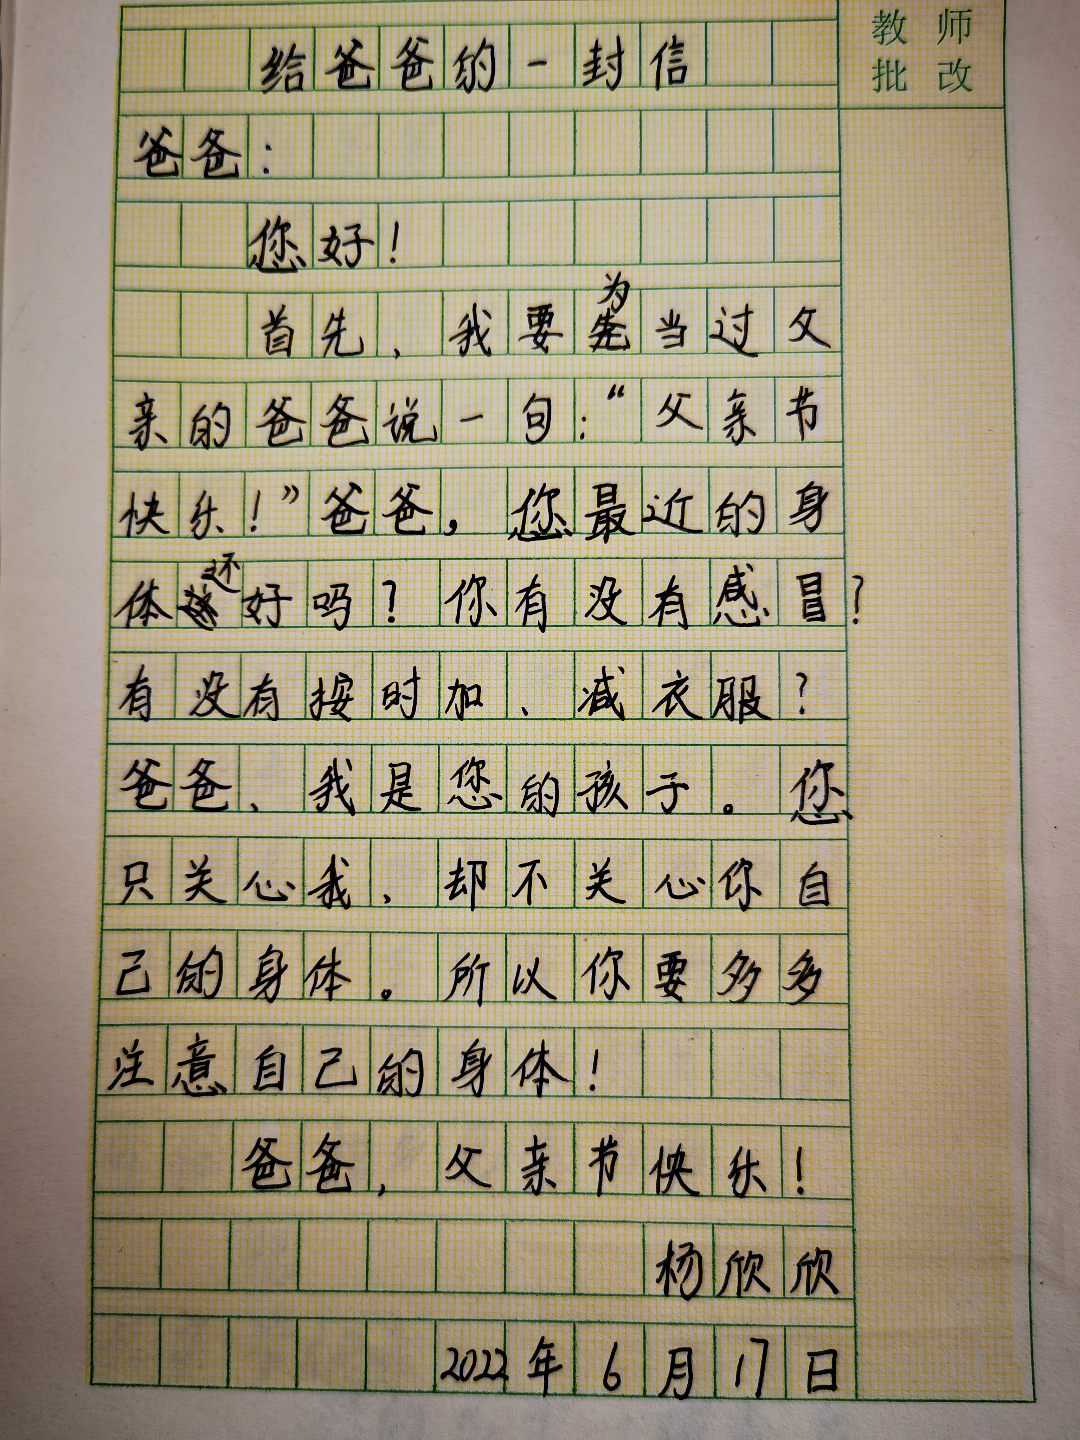 教师
批改
给爸爸的一封信
爸爸：
您好！
首先，我要为当过父
亲的爸爸说一句：“父亲节
快乐！”爸爸，您最近的身
体还好吗？你有没有感冒？
有没有按时加、减衣服？
爸爸、我是您的孩子。您
只关心我，却不关心你自
己的身体。所以你要多多
注意自己的身体！
爸爸，父亲节快乐！
杨欣欣
2022年6月17日